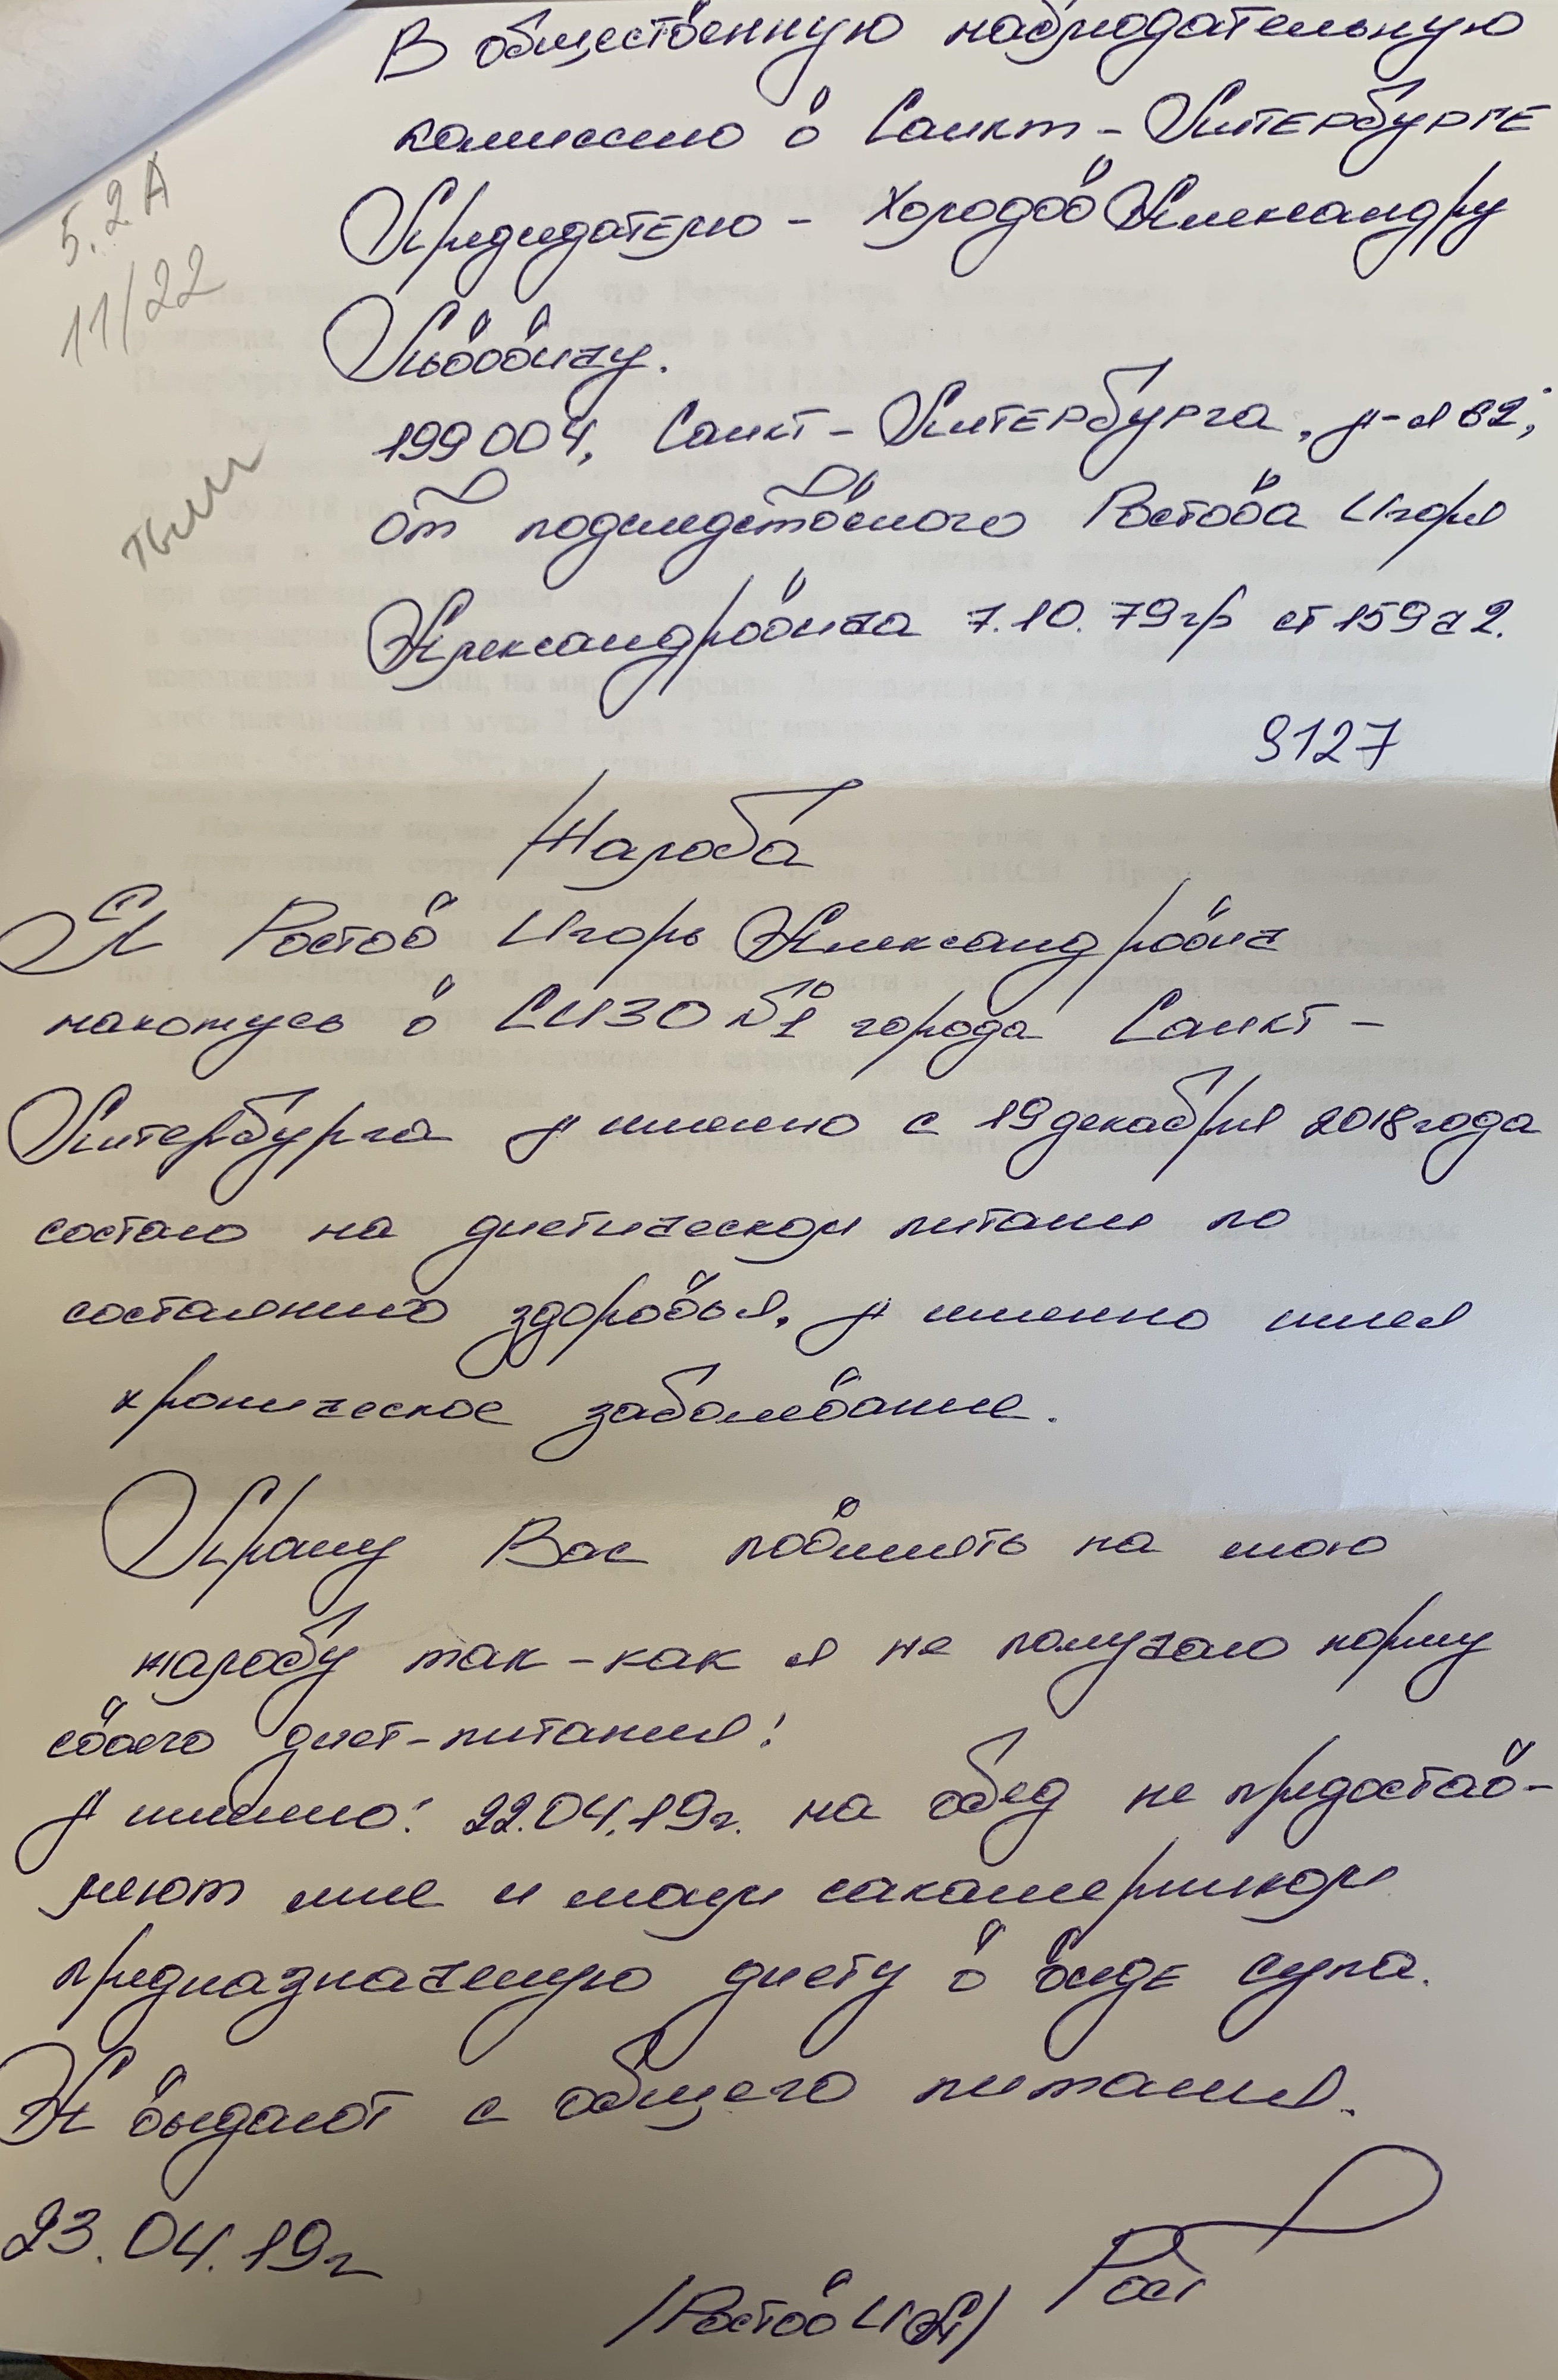 В общественную наблюдательную
комиссию в Санкт-Питербурге
Председателю - Холодов Александру
Львовичу.
199004, Санкт-Питербурга, д-я В2;
от подследственого Ростова Игоря
Александровича 7.10.79гр ст 159 ч 2.
9127
5.2 А
11/22
тыл
Жалоба
Я Ростов Игорь Александрович
нахожусь в СИЗО №1 города Санкт-
Питербурга А именно с 19 декабря 2018 года
состаю на диетической питание по
состаянию здоровья, А именно имея
хроническое заболевание.
Прашу Вас повлиять на мою
жалобу так-как я не получаю норму
своего диет-питания!
А именно: 22.04.19г. на обед не предостав-
ляют мне и моим сакамерникам
предназначеную диету в виде супа.
А выдают с общего питания.
23.04.19г
/Ростов И А/ Рост